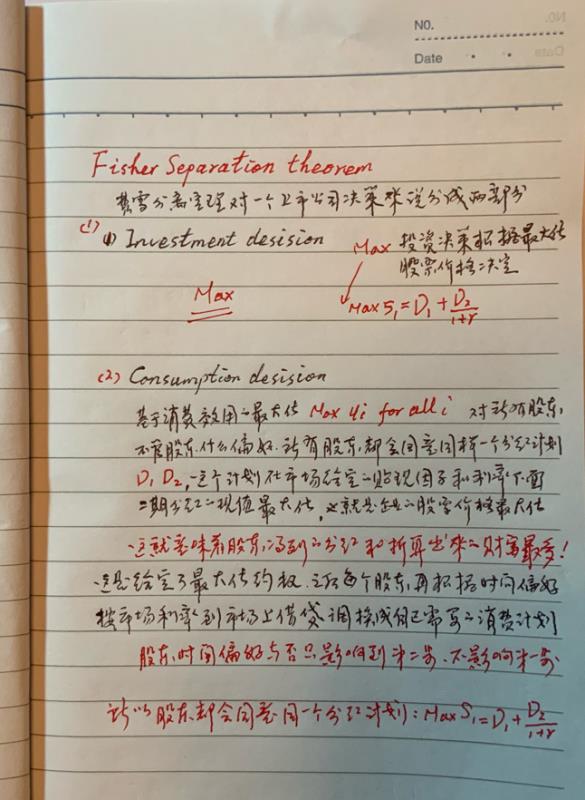 NO.
Date
Fisher Separation theorem
费雪分离定理对一个上市公司决策来说分成两部分
(1) (1) Investment desision
Max 投资决策根据最大化
股票价格决定
Max
Max S₁ = D₁ + D₂/1+r
(2) Consumption desision
基于消费效用之最大化 Max Ui for all i 对所有股东,
不管股东什么偏好. 所有股东都会同意同样一个分红计划
D₁ D₂, 这个计划在市场给定之贴现因子和利率下面
二期分红之现值最大化, 这就是企业之股票价格最大化
这就意味着股东得到之分红和折算出来之财富最多!
这是给定了最大化约束. 之后每个股东再根据时间偏好
按市场利率到市场上借贷调换成自己需要之消费计划
股东时间偏好与否只影响到第二步. 不影响第一步
所以股东都会同意同一个分红计划: Max S₁ = D₁ + D₂/1+r